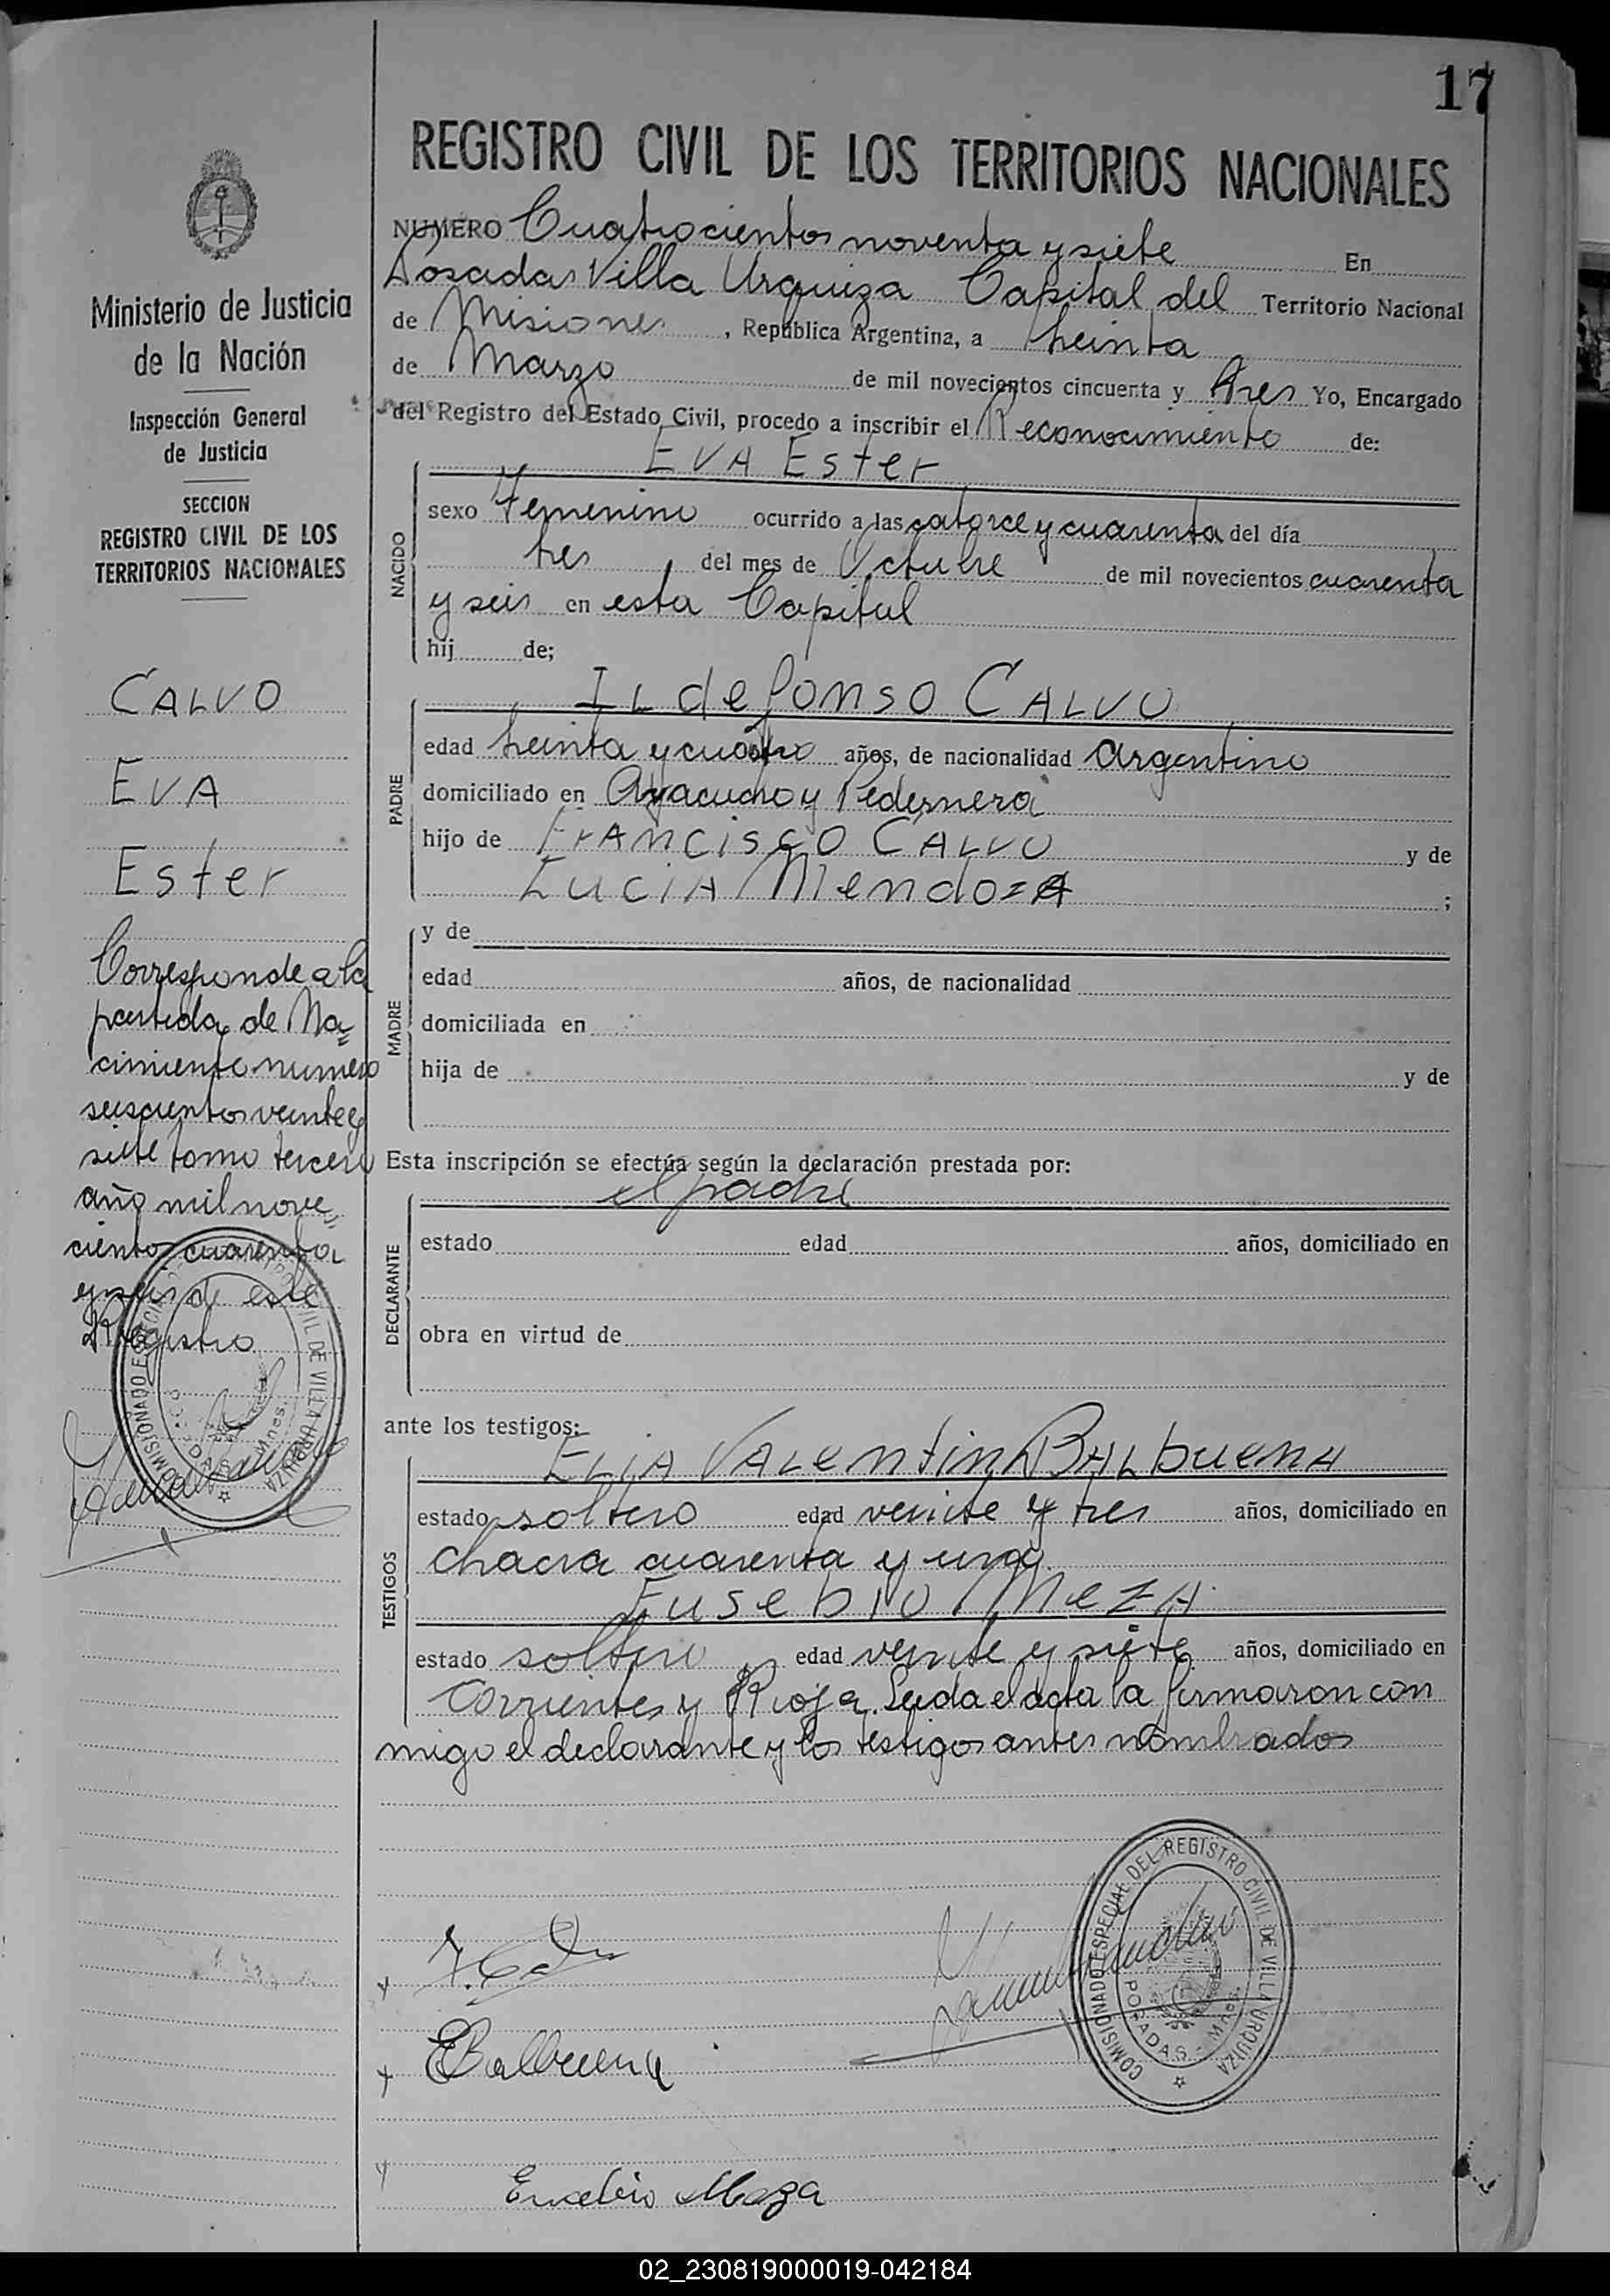 17
REGISTRO CIVIL DE LOS TERRITORIOS NACIONALES
NUMERO Cuatrocientos noventa y siete En
Posadas Villa Urquiza Capital del Territorio Nacional
de Misiones, República Argentina, a treinta
de Marzo de mil novecientos cincuenta y tres Yo, Encargado
del Registro del Estado Civil, procedo a inscribir el Reconocimiento de:
EVA Ester
NACIDO
sexo Femenino ocurrido a las catorce y cuarenta del día
tres, del mes de Octubre de mil novecientos cuarenta
y seis en esta Capital
hij de;
ILdefonso CALVO
PADRE
edad treinta y cuatro años, de nacionalidad argentino
domiciliado en Ayacucho y Pedernera
hijo de FrANCisCO CALVO y de
LuciA MendozA ;
MADRE
y de
edad años, de nacionalidad
domiciliada en
hija de y de
Esta inscripción se efectúa según la declaración prestada por:
el padre
DECLARANTE
estado edad años, domiciliado en
obra en virtud de
ante los testigos:
ELIA VALentinA BALbuenA
TESTIGOS
estado soltero edad veinte y tres años, domiciliado en
chacra cuarenta y uno
Eusebio MezA
estado soltero edad veinte y siete años, domiciliado en
Corrientes y Rioja. Leida el acta la firmaron con
migo el declarante y los testigos antes nombrados
EBalbuena
Eusebio Meza
COMISIONADO ESPECIAL DEL REGISTRO CIVIL DE VILLA URQUIZA
POSADAS - Mnes.
Ministerio de Justicia
de la Nación
Inspección General
de Justicia
SECCION
REGISTRO CIVIL DE LOS
TERRITORIOS NACIONALES
CALVO
EVA
Ester
Corresponde a la
partida de Na=
cimiento numero
seiscientos veinte y
siete tomo tercero
año mil nove=
cientos cuarenta
y seis de este
Registro
02_230819000019-042184